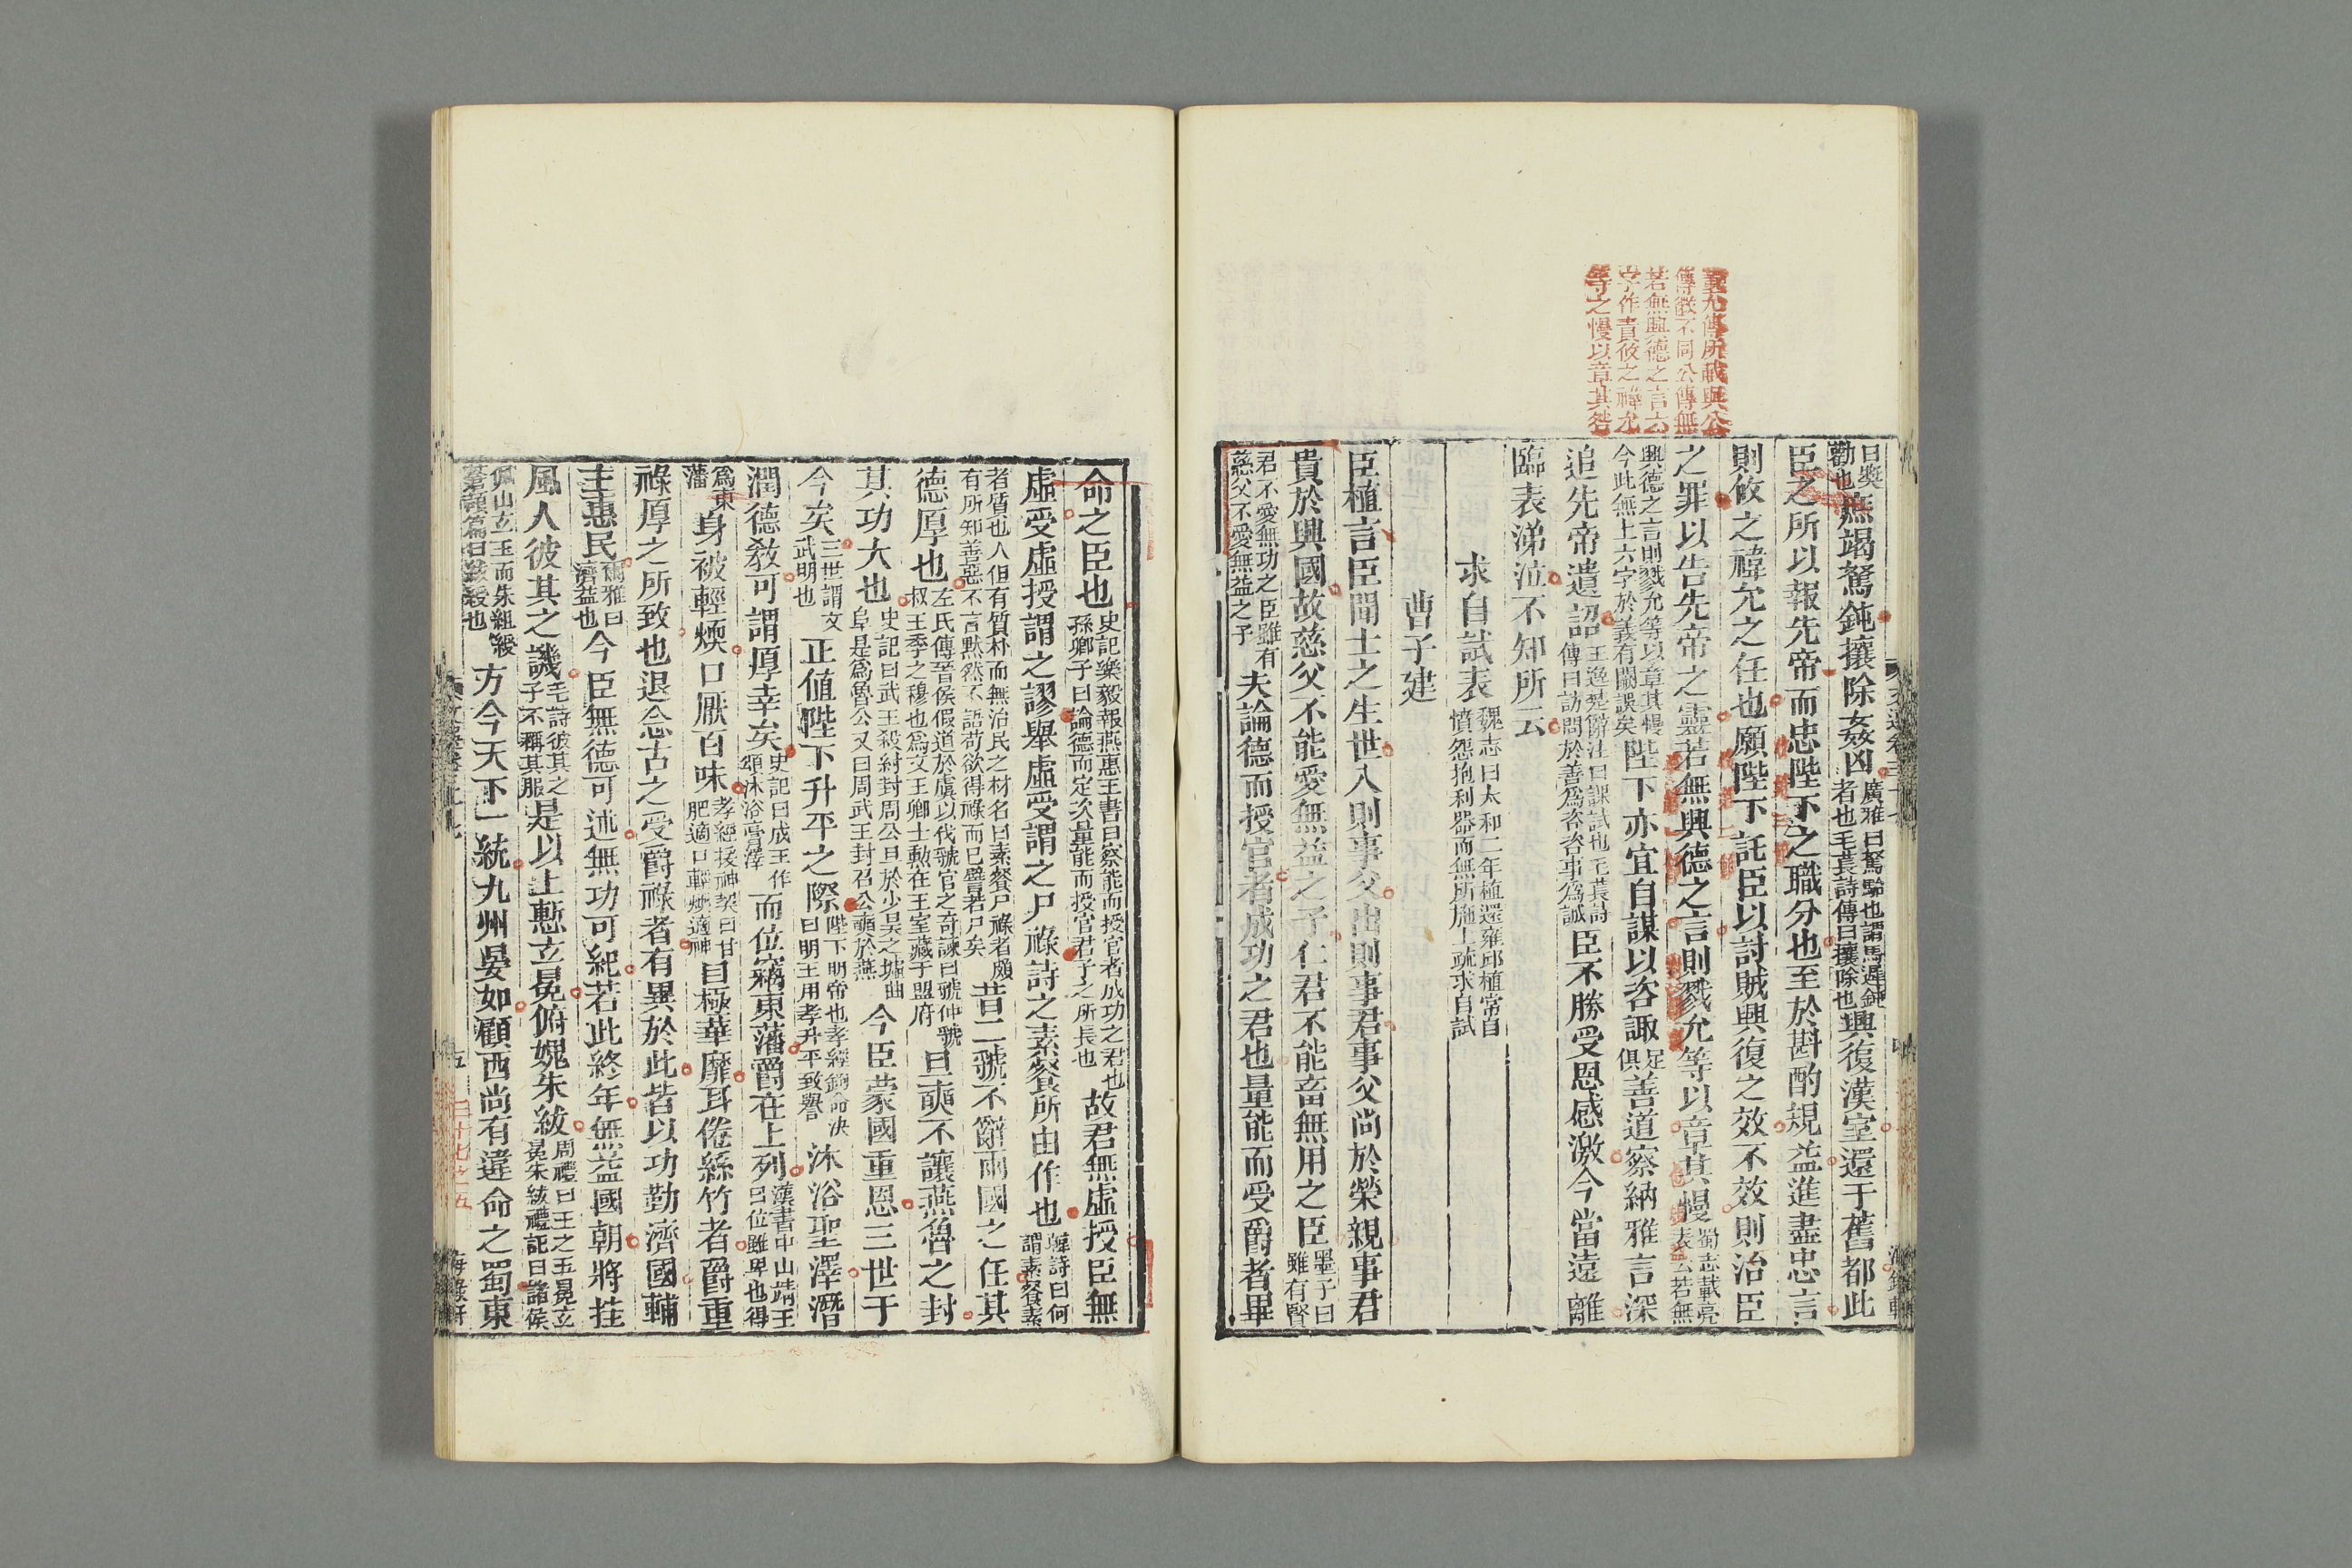 董允傳所載與公
傳微不同公傳無
若無興德之言六
字作責攸之禕允
等之慢以章其咎
曰獎勸也庶竭駑鈍攘除姦凶廣雅曰駑駘也謂馬遲鈍者也毛萇詩傳曰攘除也興復漢室還于舊都此
臣之所以報先帝而忠陛下之職分也至於斟酌規益進盡忠言
則攸之禕允之任也願陛下託臣以討賊興復之效不效則治臣
之罪以告先帝之靈若無興德之言則戮允等以章其慢蜀志載亮表云若無
興德之言則戮允等以章其慢今此無上六字於義有闕誤矣陛下亦宜自謀以咨諏足俱善道察納雅言深
追先帝遺詔王逸楚辭注曰課試也毛萇詩傳曰訪問於善爲咨咨事爲諏臣不勝受恩感激今當遠離
臨表涕泣不知所云
求自試表魏志曰太和二年植還雍邱植常自憤怨抱利器而無所施上疏求自試
曹子建
臣植言臣聞士之生世入則事父出則事君事父尚於榮親事君
貴於興國故慈父不能愛無益之子仁君不能畜無用之臣墨子曰雖有賢
君不愛無功之臣雖有慈父不愛無益之子夫論德而授官者成功之君也量能而受爵者畢
命之臣也史記樂毅報燕惠王書曰察能而授官者成功之君也孫卿子曰論德而定次量能而授官君子之所長也故君無虛授臣無
虛受虛授謂之謬舉虛受謂之尸祿詩之素餐所由作也韓詩曰何謂素餐素
者質也人但有質朴而無治民之材名曰素餐尸祿者頗有所知善惡不言默然不語苟欲得祿而已譬若尸矣昔二虢不辭兩國之任其
德厚也左氏傳晉侯假道於虞以伐虢宮之奇諫曰虢仲虢叔王季之穆也爲文王卿士勳在王室藏于盟府旦奭不讓燕魯之封
其功大也史記曰武王殺紂封周公旦於少昊之墟曲阜是爲魯公又曰周武王封召公奭於燕今臣蒙國重恩三世于
今矣三世謂文武明也正值陛下升平之際陛下明帝也孝經鉤命決曰明王用孝升平致譽沐浴聖澤潛
潤德教可謂厚幸矣史記曰成王作頌沐浴膏澤而位竊東藩爵在上列漢書中山靖王曰位雖卑也得
爲東藩身被輕煖口厭百味孝經援神契曰甘肥適口輕煖適神目極華靡耳倦絲竹者爵重
祿厚之所致也退念古之受爵祿者有異於此皆以功勤濟國輔
主惠民爾雅曰濟益也今臣無德可述無功可紀若此終年無益國朝將挂
風人彼其之譏毛詩彼其之子不稱其服是以上慙玄冕俯媿朱紱周禮曰王之五冕玄冕朱紘禮記曰諸侯
佩山玄玉而朱組綬蒼頡篇曰紱綬也方今天下一統九州晏如顧西尚有違命之蜀東
五
三十七之五